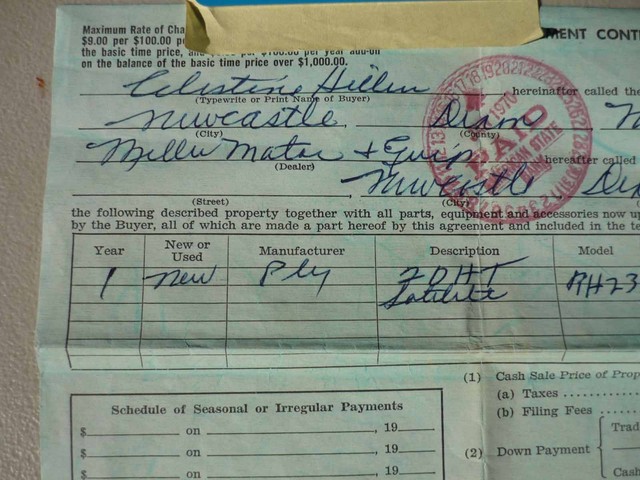 Maximum Rate of Cha
MENT CONT
$9.00 per $100.00 p
the basic time price, and per $100.00 per year add-on
on the balance of the basic time price over $1,000.00.
Celestine Hillen hereinafter called the
(Typewrite or Print Name of Buyer)
Newcastle, Dixon
(City) (County)
Miller Motor & Equip hereinafter called
(Dealer)
Newcastle Dix
(Street) (City)
1970
PAID
STATE
the following described property together with all parts, equipment and accessories now u
by the Buyer, all of which are made a part hereof by this agreement and included in the te
Year New or Used Manufacturer Description Model
1 New Ply 2DHT RH23
Satellite
(1) Cash Sale Price of Prop
(a) Taxes
(b) Filing Fees
(2) Down Payment
Trad
Cash
Schedule of Seasonal or Irregular Payments
$ on , 19
$ on , 19
$ on , 19